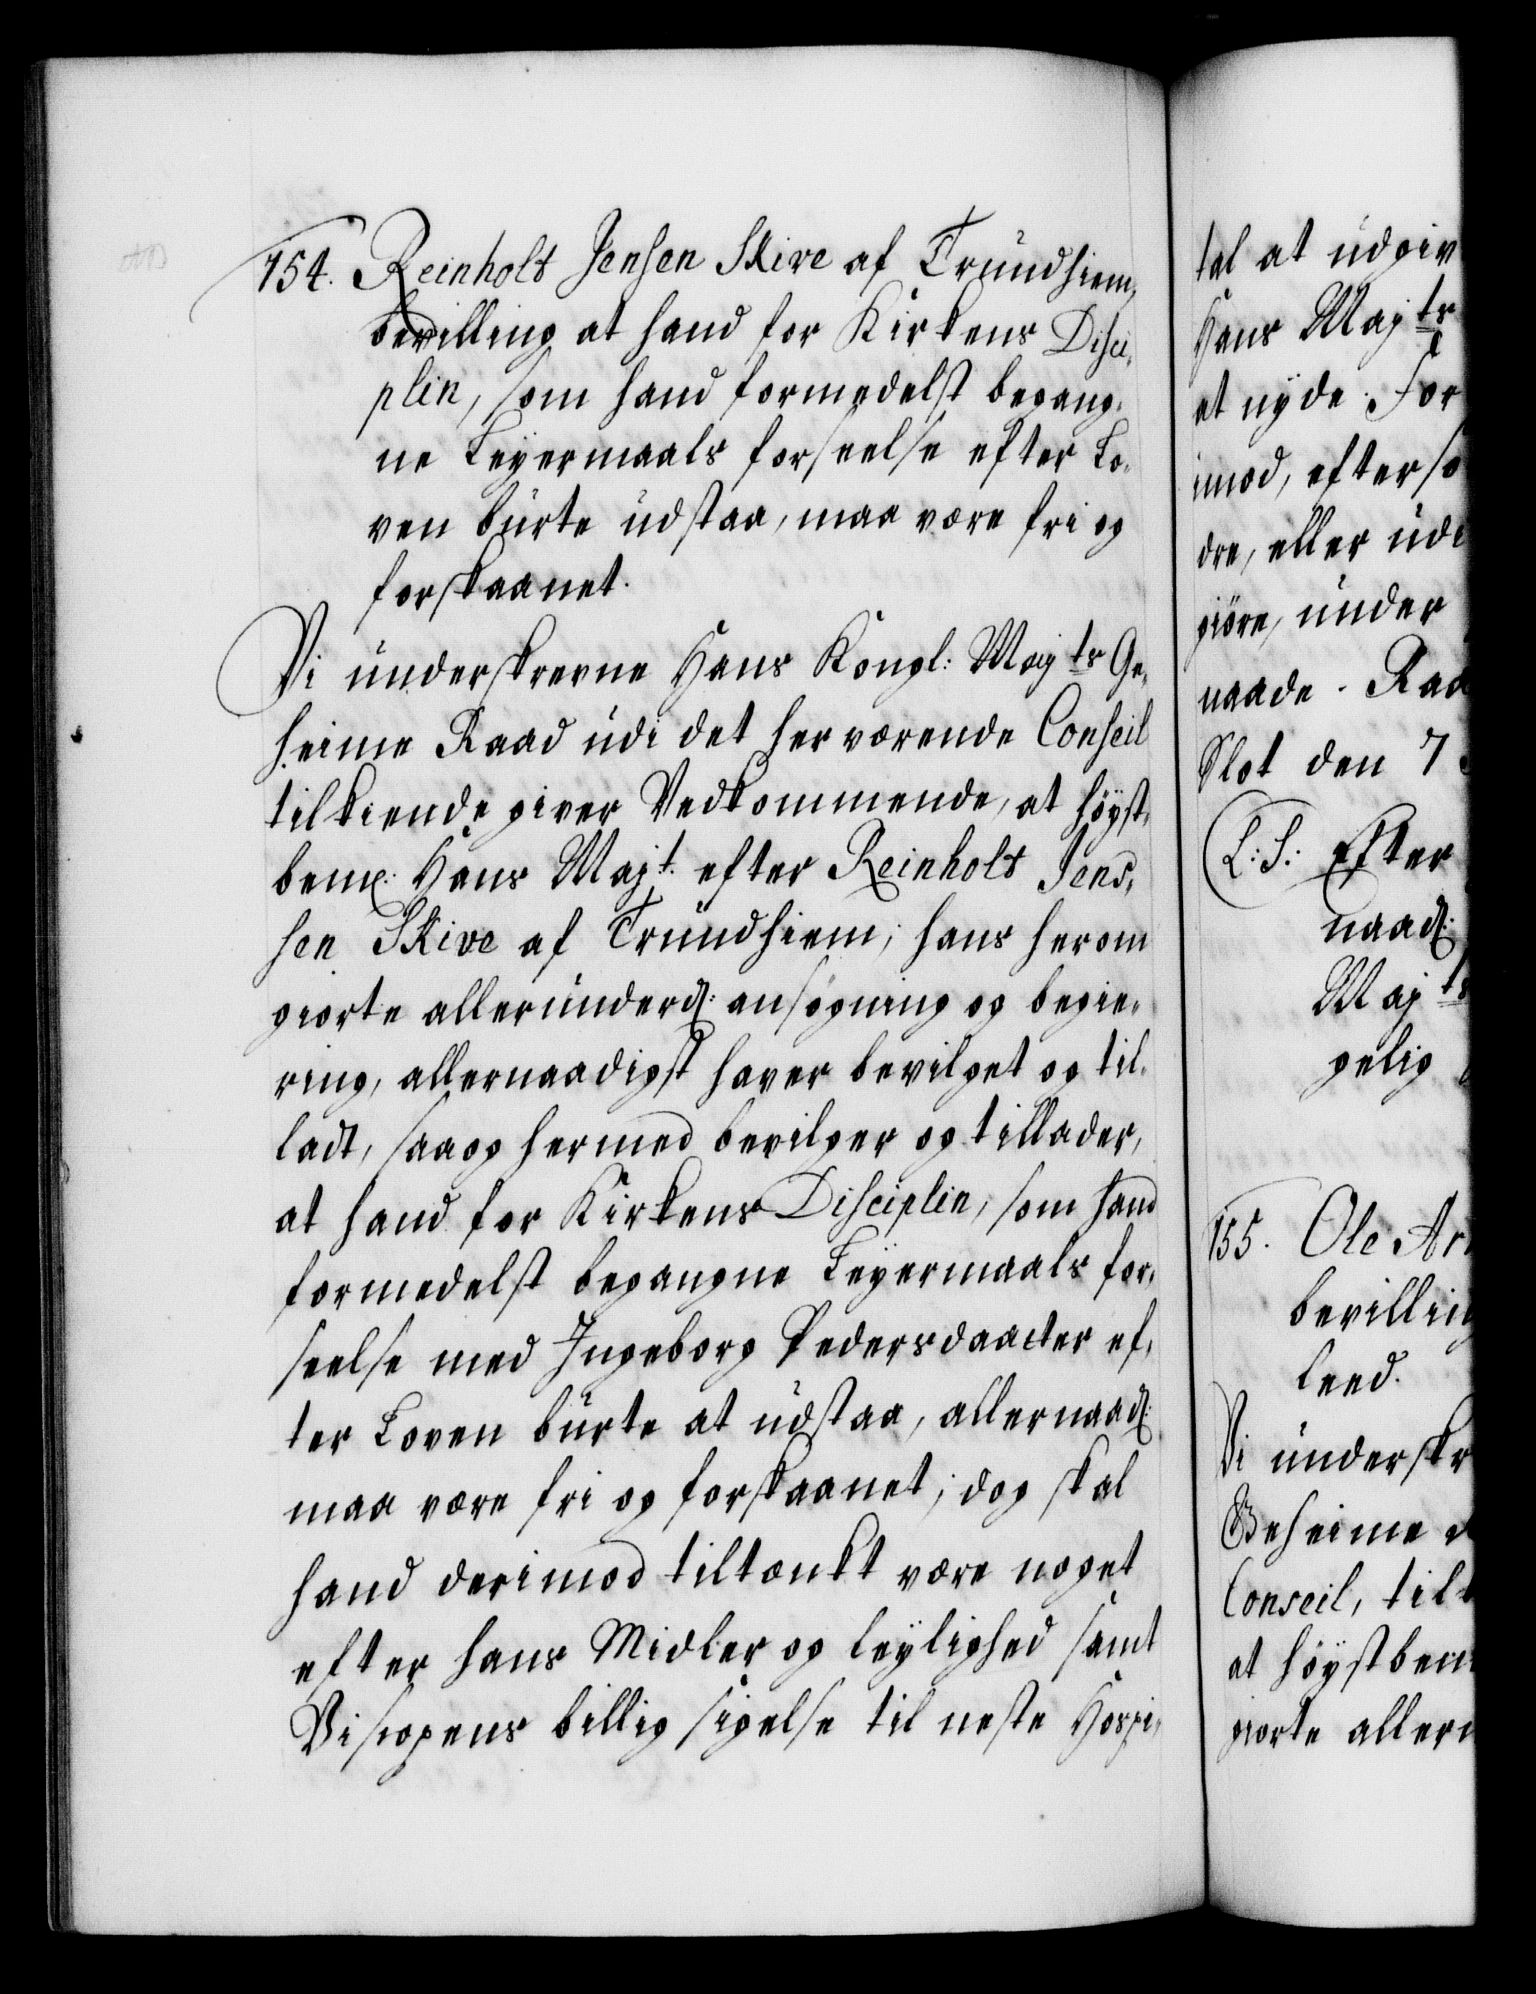 154. Reinholt Jensen Skive af Trundhiem,
bevilling at hand for Kirkens Disci-
plin, som hand formedelst begang-
ne Leyermaals forseelse efter Lo-
ven burte udstaa, maa være fri og
forskaanet.
Vi underskrevne Hans Kongl: Majts Ge-
heime Raad udi det herværende Conseil
tilkiende giver Vedkommende, at høyst-
bemte: Hans Majt. efter Reinholt Jens-
sen Skive af Trundhiem, hans herom
giorte allerunderd: ansøgning og begie-
ring, allernaadigst haver bevilget og til-
ladt, saa og hermed bevilger og tillader,
at hand for Kirkens Disciplin, som hand
formedelst begangne Leyermaals for-
seelse med Ingeborg Pedersdaatter ef-
ter Loven burte at udstaa, allernaad:
maa være fri og forskaanet; dog skal
hand derimod tiltænkt være noget
efter hans Midler og leylighed samt
Biscopens billig sigelse til neste Hospi-
tal at udgiv
Hans Majts
at nyde. For
imod, efter so
dre, eller udi
giøre, under
naade. Raa
Slot den 7
(L:S: Efter
naad:
Majts
gelig
155. Ole Ar
bevilling
leed.
Vi underskr
Geheime
Conseil, til
at høystbem
giorte allern